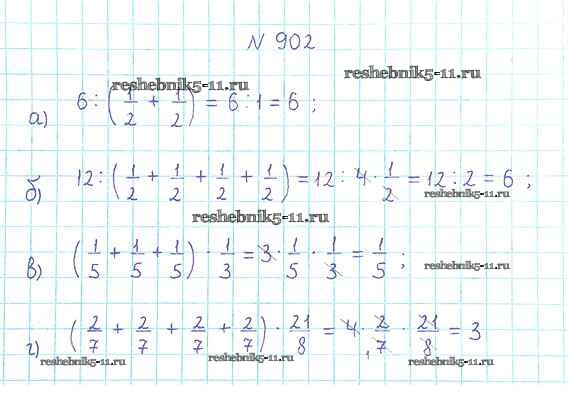 № 902
reshebnik5-11.ru reshebnik5-11.ru
а) 6 : (1/2 + 1/2) = 6 : 1 = 6 ;
б) 12 : (1/2 + 1/2 + 1/2 + 1/2) = 12 : 4 · 1/2 = 12 : 2 = 6 ;
reshebnik5-11.ru
reshebnik5-11.ru
в) (1/5 + 1/5 + 1/5) · 1/3 = 3 · 1/5 · 1/3 = 1/5 ;
reshebnik5-11.ru
г) (2/7 + 2/7 + 2/7 + 2/7) · 21/8 = 4 · 2/7 · 21/8 = 3
reshebnik5-11.ru reshebnik5-11.ru reshebnik5-11.ru